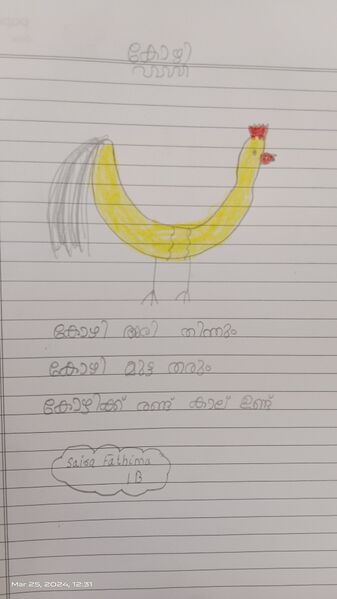 കോഴി
കോഴി അരി തിന്നും
കോഴി മുട്ട തരും
കോഴിക്ക് രണ്ട് കാല് ഉണ്ട്
Saisa Fathima
1B
Mar 25, 2024, 12:31